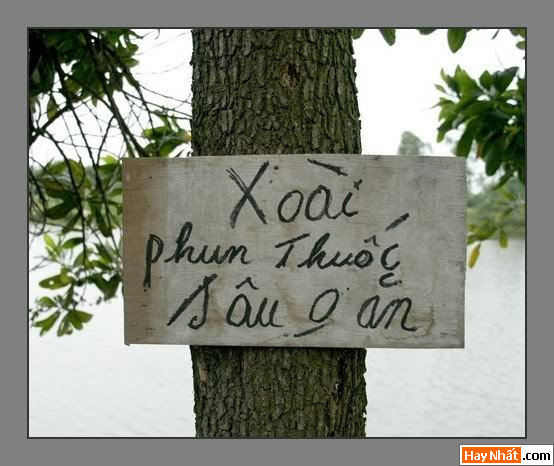 Xoài
phun Thuốc
Sâu 0 ăn
HayNhất.com